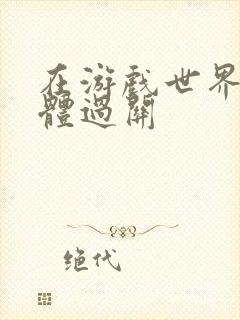 在游戏世界
體過關
绝代